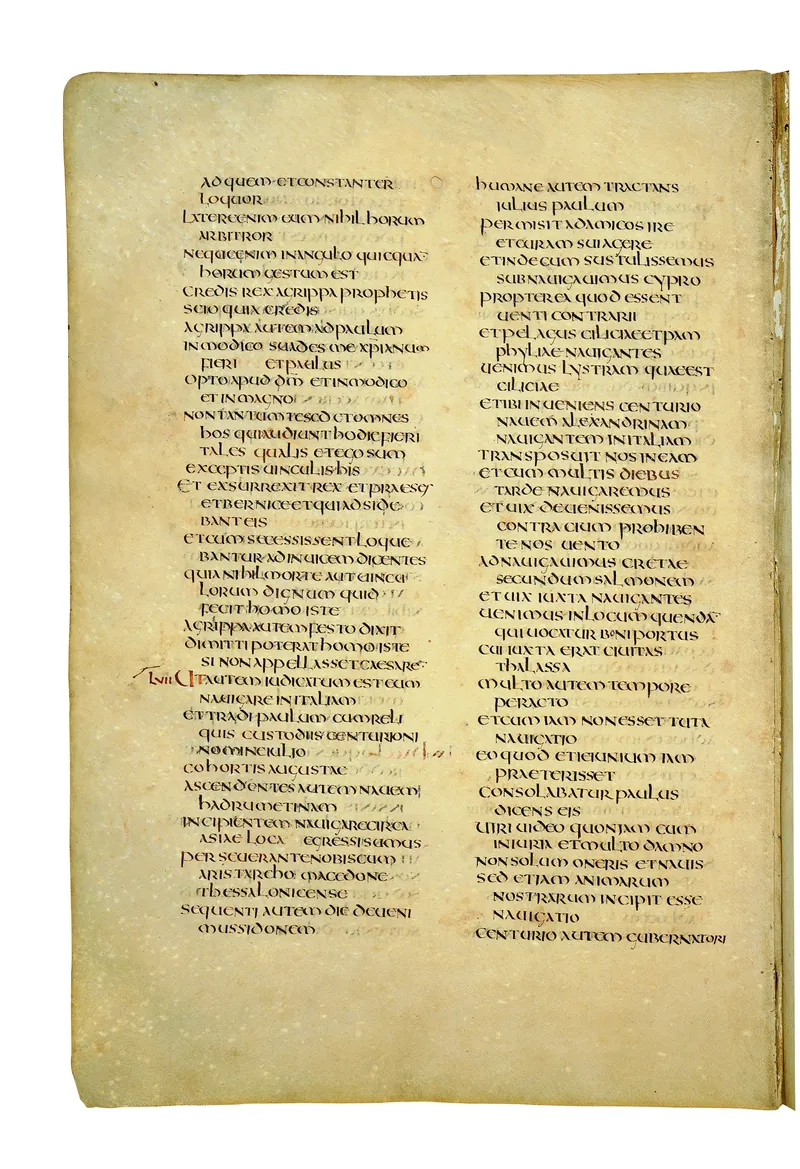 AD QUEM ET CONSTANTER
LOQUOR
LATERE ENIM EUM NIHIL HORUM
ARBITROR
NEQUE ENIM IN ANGULO QUICQUA
HORUM GESTUM EST
CREDIS REX AGRIPPA PROPHETIS
SCIO QUIA CREDIS
AGRIPPA AUTEM AD PAULUM
IN MODICO SUADES ME XPIANUM
FIERI ET PAULUS
OPTO APUD DM ET IN MODICO
ET IN MAGNO
NON TANTUM TE SED ET OMNES
HOS QUI AUDIUNT HODIE FIERI
TALES QUALIS ET EGO SUM
EXCEPTIS UINCULIS HIS
ET EXSURREXIT REX ET PRAESES
ET BERNICE ET QUI ADSIDE
BANT EIS
ET CUM SECESSISSENT LOQUE
BANTUR AD INUICEM DICENTES
QUIA NIHIL MORTE AUT UINCU
LORUM DIGNUM QUID
FECIT HOMO ISTE
AGRIPPA AUTEM FESTO DIXIT
DIMITTI POTERAT HOMO ISTE
SI NON APPELLASSET CAESARE
LXVII UT AUTEM IUDICATUM EST EUM
NAUIGARE IN ITALIAM
ET TRADI PAULUM CUM RELI
QUIS CUSTODIIS CENTURIONI
NOMINE IULIO
COHORTIS AUGUSTAE
ASCENDENTES AUTEM NAUEM
HADRUMETINAM
INCIPIENTEM NAUIGARE CIRCA
ASIAE LOCA EGRESSI SUMUS
PERSEUERANTE NOBISCUM
ARISTARCHO MACEDONE
THESSALONICENSE
SEQUENTI AUTEM DIE DEUENI
MUS SIDONEM
HUMANE AUTEM TRACTANS
IULIUS PAULUM
PERMISIT AD AMICOS IRE
ET CURAM SUI AGERE
ET INDE CUM SUSTULISSEMUS
SUBNAUIGAUIMUS CYPRO
PROPTEREA QUOD ESSENT
UENTI CONTRARII
ET PELAGUS CILICIAE ET PAM
PHYLIAE NAUIGANTES
UENIMUS LYSTRAM QUAE EST
CILICIAE
ET IBI INUENIENS CENTURIO
NAUEM ALEXANDRINAM
NAUIGANTEM IN ITALIAM
TRANSPOSUIT NOS IN EAM
ET CUM MULTIS DIEBUS
TARDE NAUIGAREMUS
ET UIX DEUENISSEMUS
CONTRA CIUM PROHIBEN
TE NOS UENTO
ADNAUIGAUIMUS CRETAE
SECUNDUM SALMONEM
ET UIX IUXTA NAUIGANTES
UENIMUS IN LOCUM QUENDA
QUI UOCATUR BONI PORTUS
CUI IUXTA ERAT CIUITAS
THALASSA
MULTO AUTEM TEMPORE
PERACTO
ET CUM IAM NON ESSET TUTA
NAUIGATIO
EO QUOD ET IEIUNIUM IAM
PRAETERISSET
CONSOLABATUR PAULUS
DICENS EIS
UIRI UIDEO QUONIAM CUM
INIURIA ET MULTO DAMNO
NON SOLUM ONERIS ET NAUIS
SED ETIAM ANIMARUM
NOSTRARUM INCIPIT ESSE
NAUIGATIO
CENTURIO AUTEM GUBERNATORI